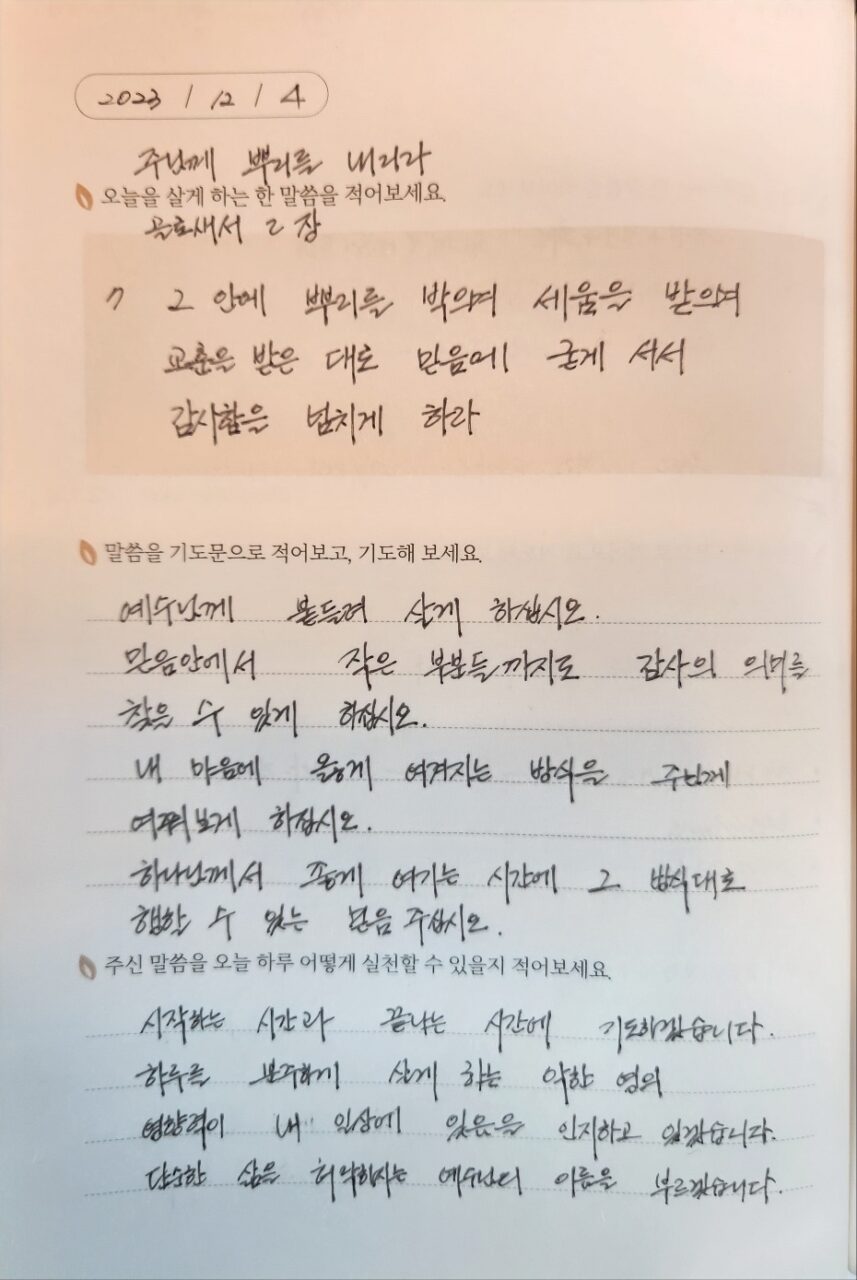 2023 / 12 / 4
주님께 뿌리를 내리라
오늘을 살게 하는 한 말씀을 적어보세요.
골로새서 2장
7 그 안에 뿌리를 박으며 세움을 받으며
교훈을 받은 대로 믿음에 굳게 서서
감사함을 넘치게 하라
말씀을 기도문으로 적어보고, 기도해 보세요.
예수님께 붙들려 살게 하십시오.
믿음안에서 작은 부분들까지도 감사의 의미를
찾을 수 있게 하십시오.
내 마음에 옳게 여겨지는 방식을 주님께
여쭤보게 하십시오.
하나님께서 좋게 여기는 시간에 그 방식대로
행할 수 있는 믿음 주십시오.
주신 말씀을 오늘 하루 어떻게 실천할 수 있을지 적어보세요.
시작하는 시간과 끝나는 시간에 기도하겠습니다.
하루를 분주하게 살게 하는 악한 영의
영향력이 내 일상에 있음을 인지하고 있겠습니다.
단순한 삶을 허락하시는 예수님의 이름을 부르겠습니다.